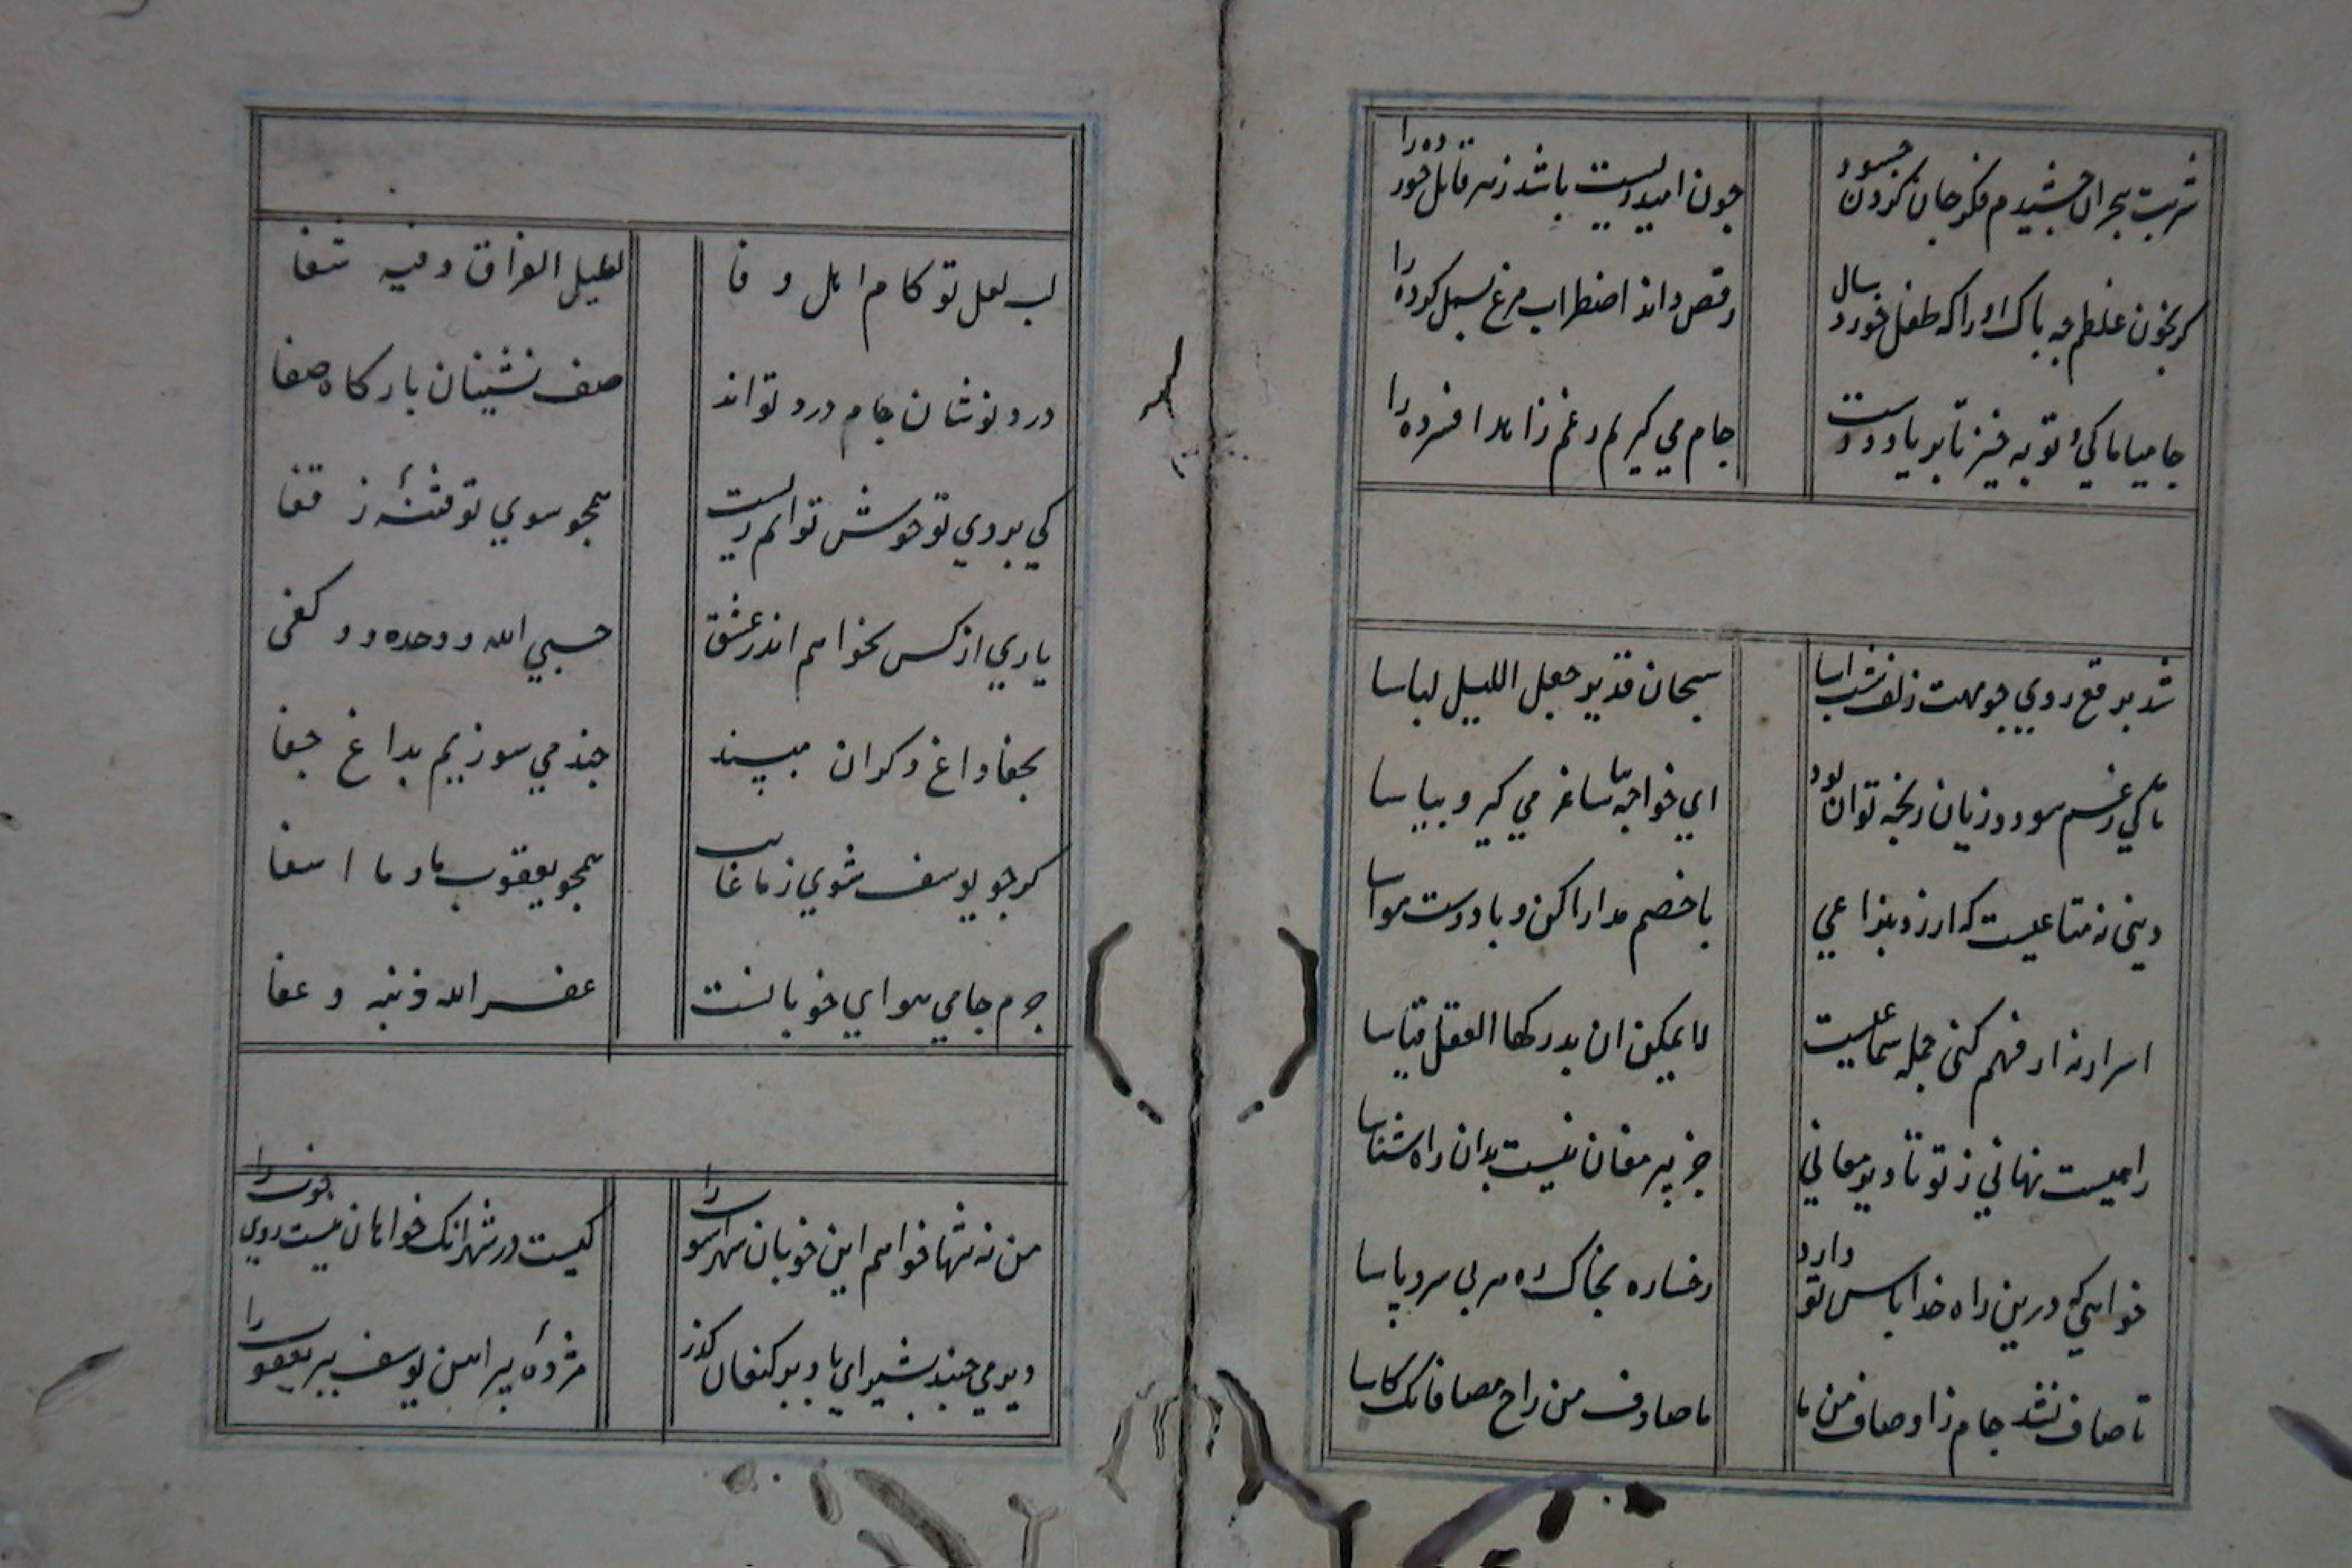 شربت هجران چشیدم فکر جان کردن چسود
چون امید زیست باشد زهر قاتل خورده را
کر بخون غلطم چه باک او را که طفل خورد سال
رقص داند اضطراب مرغ بسمل کرده را
جامیا ماکی و توبه خیز تا بر یاد دوست
جام می کیریم رغم زاهد افسرده را
شد برقع روی چو مهت زلف شب آسا
سبحان قدیر جعل اللیل لباسا
تا کی زغم سود و زیان رنجه توان بود
ای خواجه بیا ساغر می کیر و بیاسا
دینی نه متاعیست که ارزد بنزاعی
با خصم مدارا کن و با دوست مواسا
اسرار نه از فهم کنی جمله سماعیست
لا یمکن ان یدرکها العقل قیاسا
راهیست نهانی ز تو تا دیر معانی
جز پیر مغان نیست بدان راه شناسا
خواهی که درین راه خدا پاس تو دارد
رخساره بخاک ره هر بی سر و پا سا
تا صاف نشد جام ز اوصاف من ما
ما صادف من راح مصافاتک کاسا
لب لعل تو کام اهل وفا
لعلیل الفراق و فیه شفا
درد نوشان جام درد تو اند
صف نشینان بارکاه صفا
کی بروی تو خوش توانم زیست
همچو سوی تو فتنهٔ ز قفا
یاری از کس نخواهم اندر عشق
حسبی الله و وحده و کفی
بجفا داغ دکران مپسند
چند می سوزیم بداغ جفا
کر چو یوسف شوی ز ما غایب
همچو یعقوب ما و یا اسفا
جرم جامی هوای خوبانست
غفر الله ذنبه و عفا
من نه تنها خواهم این خوبان شهر آشوب را
کیست در شهر آنک خواهان نیست روی خوب را
دیر می جنبد بشیر ای باد بر کنعان کذر
مژدهٔ پیراهن یوسف ببر یعقوب را